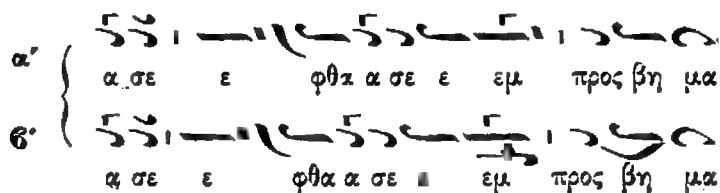 α' α σε ε φθα α σε ε εμ προς βη μα
6' α σε ε φθα α σε εμ προς βη μα